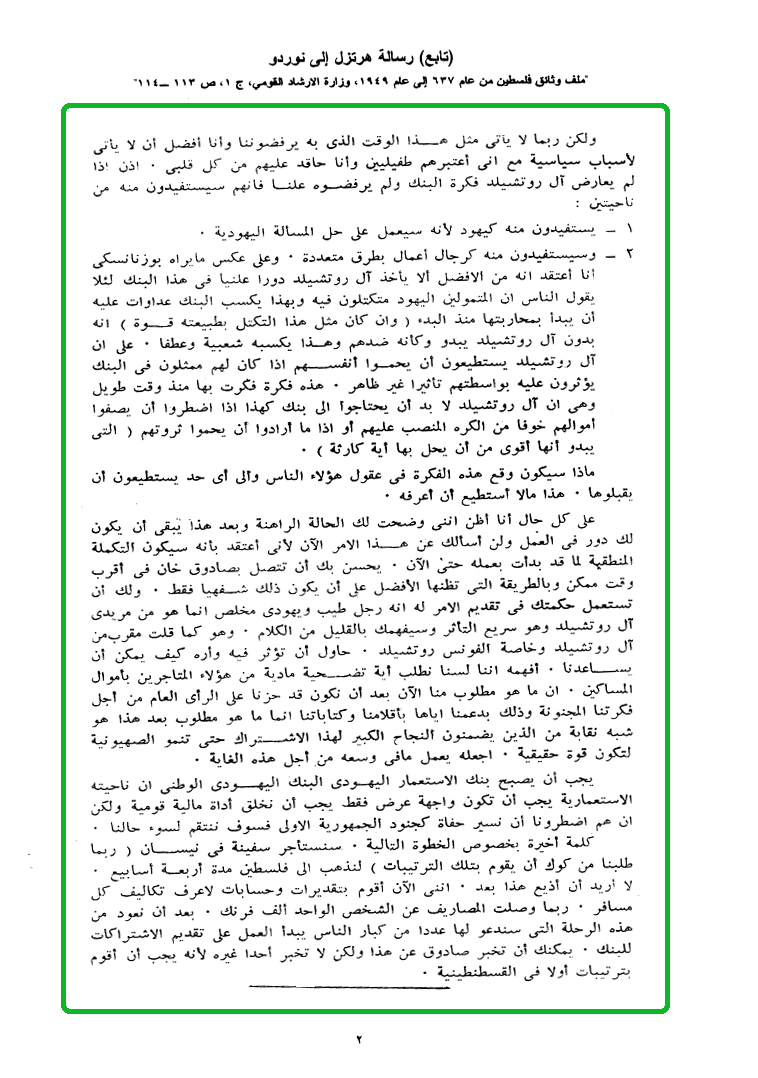 (تابع) رسالة هرتزل إلى نوردو
"ملف وثائق فلسطين من عام ٦٣٧ إلى عام ١٩٤٩، وزارة الارشاد القومي، ج ١، ص ١١٣ ــ ١١٤"
ولكن ربما لا يأتى مثل هــذا الوقت الذى به يرفضوننا وأنا أفضل أن لا يأتى
لأسباب سياسية مع انى أعتبرهم طفيليين وأنا حاقد عليهم من كل قلبى ٠ اذن اذا
لم يعارض آل روتشيلد فكرة البنك ولم يرفضـوه علنـا فانهم سيستفيدون منه من
ناحيتين :
١ ــ يستفيدون منه كيهود لأنه سيعمل على حل المسالة اليهودية ٠
٢ ــ وسيستفيدون منه كرجال أعمال بطرق متعددة ٠ وعلى عكس مايراه بوزنانسكى
أنا أعتقد انه من الافضل ألا يأخذ آل روتشيلد دورا علنيا فى هذا البنك لئلا
يقول الناس ان المتمولين اليهود متكتلون فيه وبهذا يكسب البنك عداوات عليه
أن يبدأ بمحاربتها منذ البدء ( وان كان مثل هذا التكتل بطبيعته قــوة ) انه
بدون آل روتشيلد يبدو وكانه ضدهم وهــذا يكسبه شعبية وعطفا ٠ على ان
آل روتشيلد يستطيعون أن يحمـوا أنفســـهم اذا كان لهم ممثلون فى البنك
يؤثرون عليه بواسطتهم تأثيرا غير ظاهر ٠ هذه فكرة فكرت بها منذ وقت طويل
وهى ان آل روتشيلد لا بد أن يحتاجوآ الى بنك كهذا اذا اضطروا أن يصفوا
أموالهم خوفا من الكره المنصب عليهم أو اذا ما أرادوا أن يحموا ثروتهم ( التى
يبدو أنها أقوى من أن يحل بها أية كارثة ) ٠
ماذا سيكون وقع هذه الفكرة فى عقول هؤلاء الناس والى أى حد يستطيعون أن
يقبلوها ٠ هذا مالا أستطيع أن أعرفه ٠
على كل حال أنا أظن اننى وضحت لك الحالة الراهنة وبعد هذا يبقى أن يكون
لك دور فى العمل ولن أسالك عن هـــذا الامر الآن لأنى أعتقد بأنه سيكون التكملة
المنطقية لما قد بدأت بعمله حتى الآن ٠ يحسن بك أن تتصل بصادوق خان فى أقرب
وقت ممكن وبالطريقة التى تظنها الأفضل على أن يكون ذلك شــفهيا فقط ٠ ولك أن
تستعمل حكمتك فى تقديم الامر له انه رجل طيب ويهودى مخلص انما هو من مريدى
آل روتشيلد وهو سريع التأثر وسيفهمك بالقليل من الكلام ٠ وهو كما قلت مقرب من
آل روتشيلد وخاصة الفونس روتشيلد ٠ حاول أن تؤثر فيه وأره كيف يمكن أن
يســـاعدنا ٠ أفهمه اننا لسنا نطلب أية تضــحية مادية من هؤلاء المتاجرين بأموال
المساكين ٠ ان ما هو مطلوب منا الآن بعد أن نكون قد حزنا على الرأى العام من أجل
فكرتنا المجنونة وذلك بدعمنا اياها بأقلامنا وكتاباتنا انما ما هو مطلوب بعد هذا هو
شبه نقابة من الذين يضمنون النجاح الكبير لهذا الاشــتراك حتى تنمو الصهيونية
لتكون قوة حقيقية ٠ اجعله يعمل مافى وسعه من أجل هذه الغاية ٠
يجب أن يصبح بنك الاستعمار اليهودى البنك اليهــودى الوطنى ان ناحيته
الاستعمارية يجب أن تكون واجهة عرض فقط يجب أن نخلق أداة مالية قومية ولكن
ان هم اضطرونا أن نسير حفاة كجنود الجمهورية الاولى فسوف ننتقم لسوء حالنا ٠
كلمة أخيرة بخصوص الخطوة التالية ٠ سنستأجر سفينة فى نيســـان ( ربما
طلبنا من كوك أن يقوم بتلك الترتيبات ) لنذهب الى فلسطين مدة أربعــة أسابيع ٠
لا أريد أن أذيع هذا بعد ٠ اننى الآن أقوم بتقديرات وحسابات لاعرف تكاليف كل
مسافر ٠ ربما وصلت المصاريف عن الشخص الواحد ألف فرنك ٠ بعد أن نعود من
هذه الرحلة التى سندعو لها عددا من كبار الناس يبدأ العمل على تقديم الاشتراكات
للبنك ٠ يمكنك أن تخبر صادوق عن هذا ولكن لا تخبر أحدا غيره لأنه يجب أن أقوم
بترتيبات أولا فى القسطنطينية ٠
٢